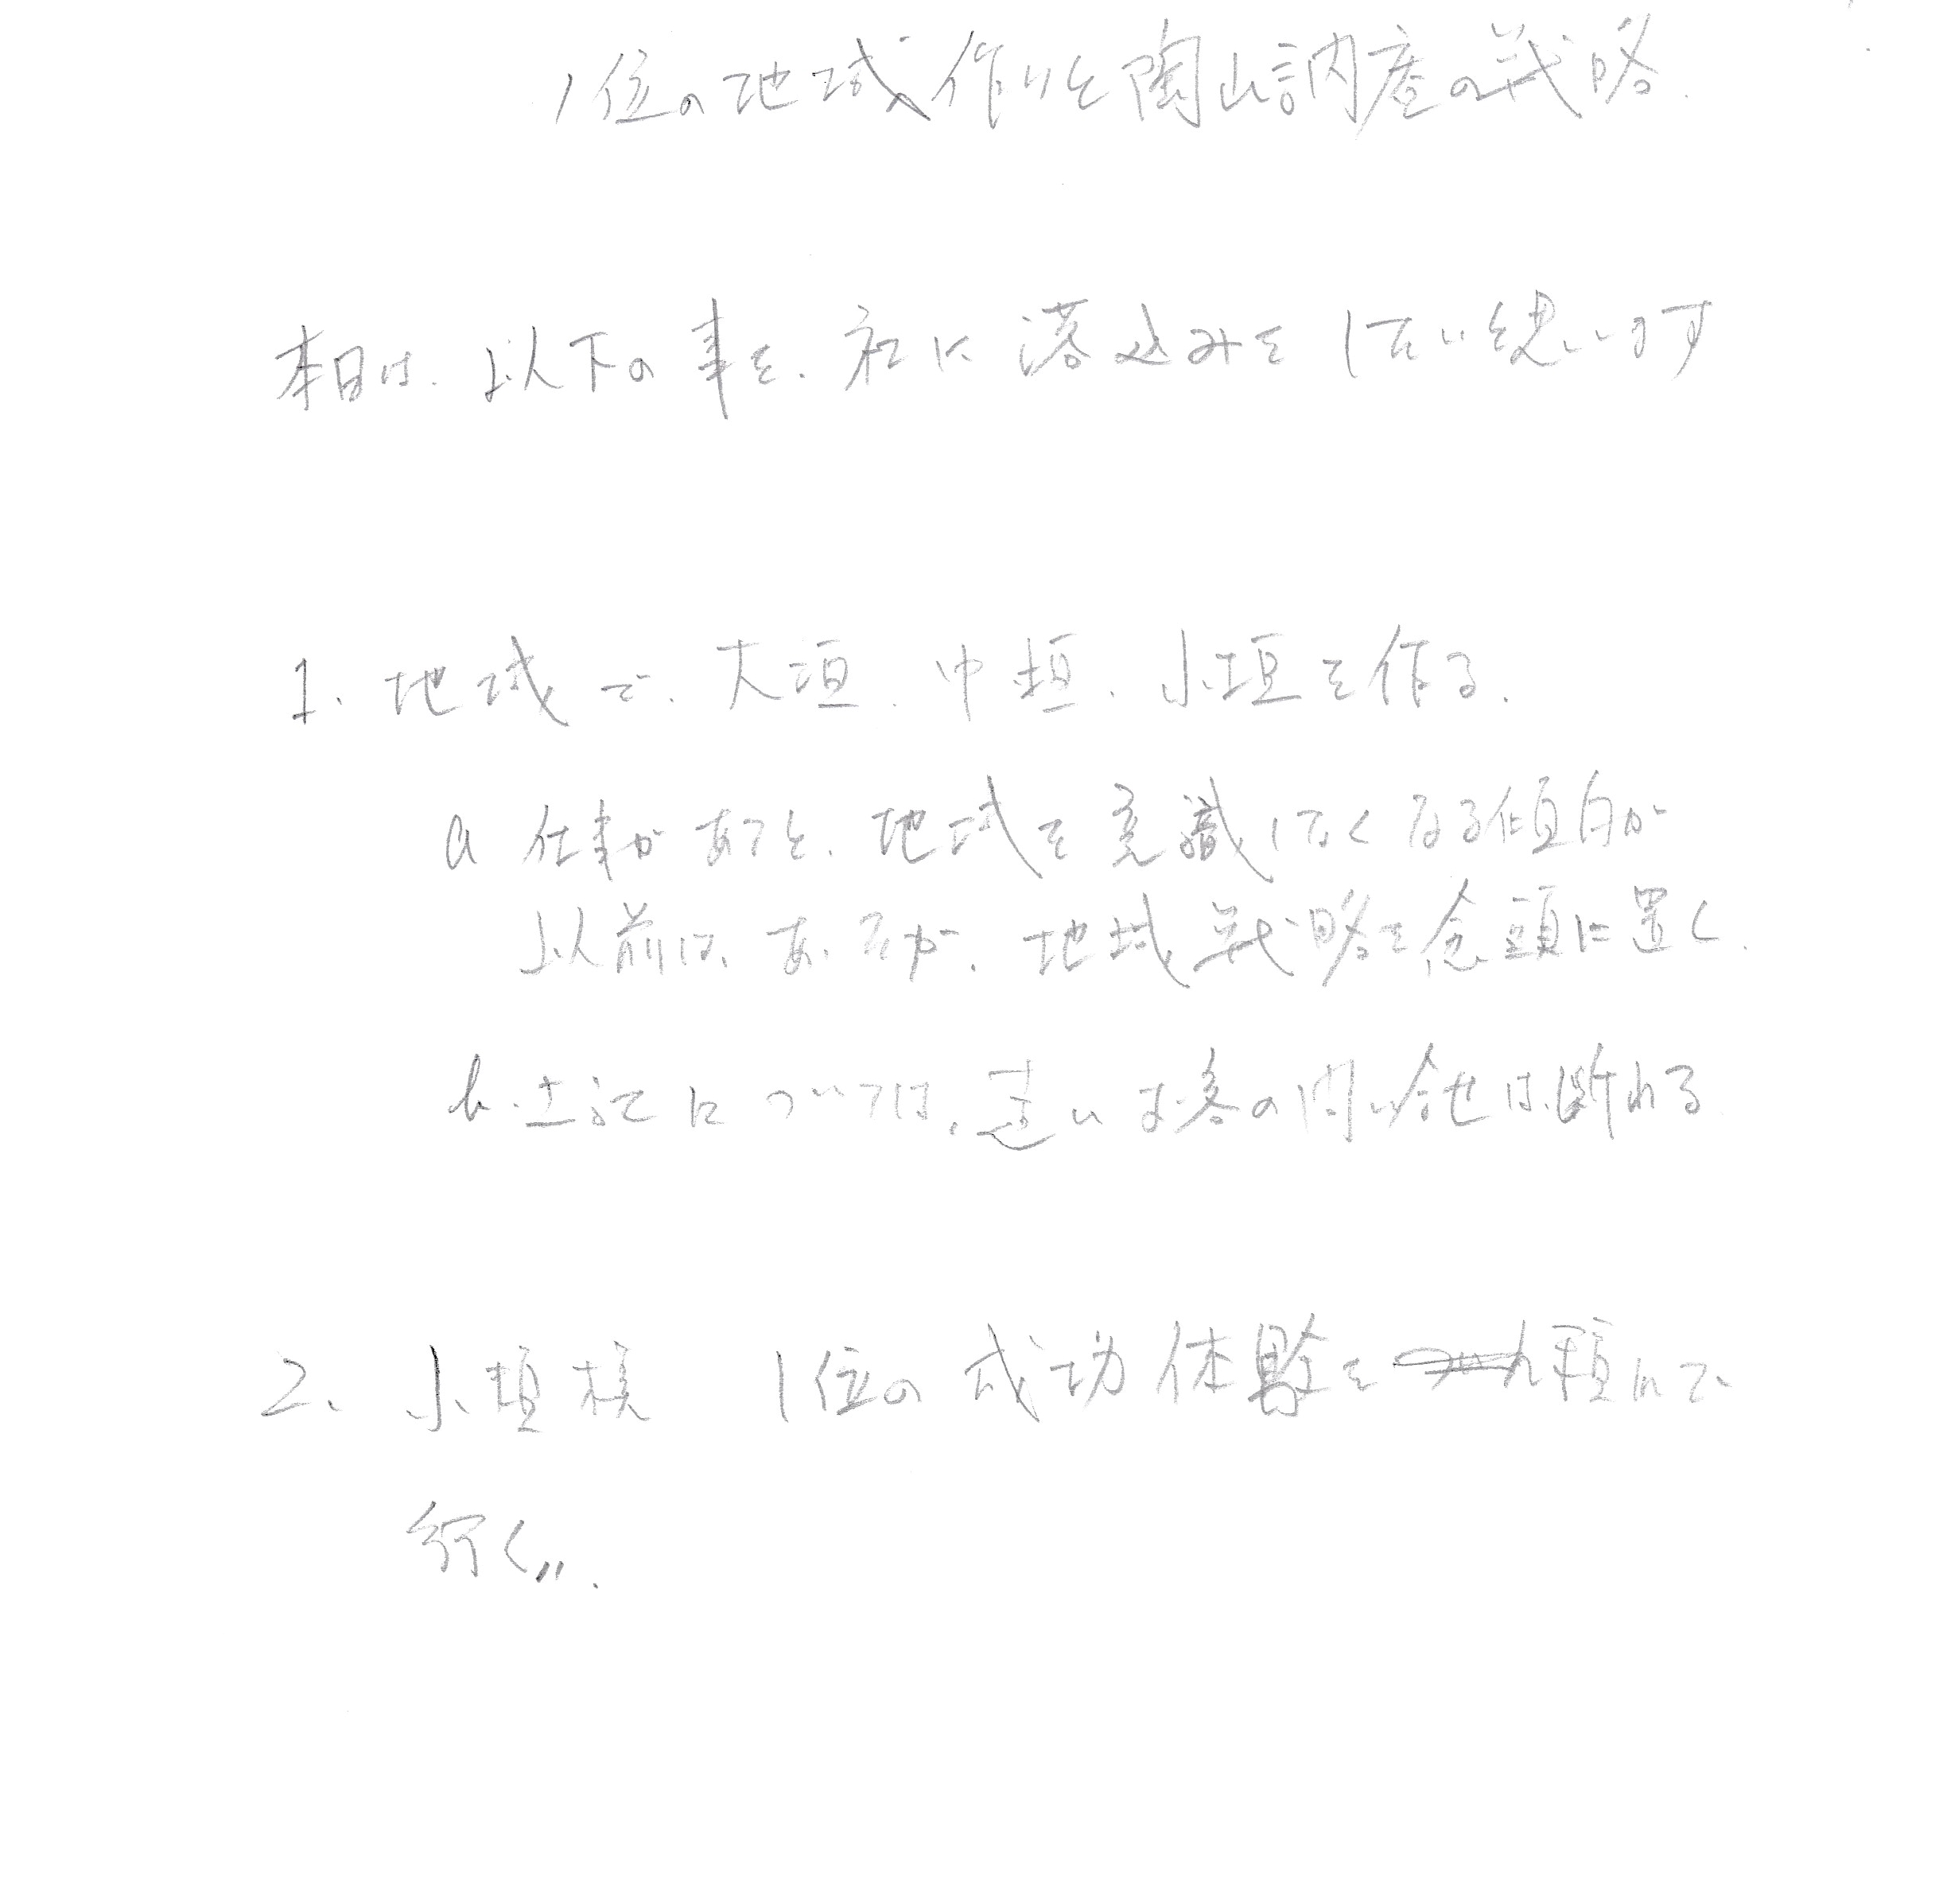 1位の地域作りと陶山訥庵の戦略.
本日は. 以下の事を. 社に落込みをしたい と思います
1. 地域で. 大垣. 中垣. 小垣を作る.
a 仕事があると. 地域を意識しなくなる傾向が
以前は、あったが. 地域戦略を念頭に置く.
b. 土記については. 遠いお客の問い合せは断れる
2. 小垣様 1位の成功体験を積んで
行く〃.